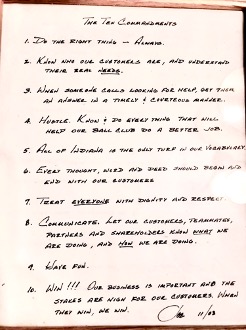 The Ten Commandments
1. Do the right thing – Always.
2. Know who our customers are, and understand
their real needs.
3. When someone calls looking for help, get them
an answer in a timely & courteous manner.
4. Hustle. Know & do every thing that will
help our ball club do a better job.
5. All of Indiana is the only turf in our vocabulary.
6. Every thought, word and deed should begin and
end with our customers
7. Treat everyone with dignity and respect.
8. Communicate. Let our customers, teammates,
partners and shareholders know what we
are doing, and how we are doing.
9. Have fun.
10. Win!!! Our business is important and the
stakes are high for our customers. When
they win, we win.
11/03